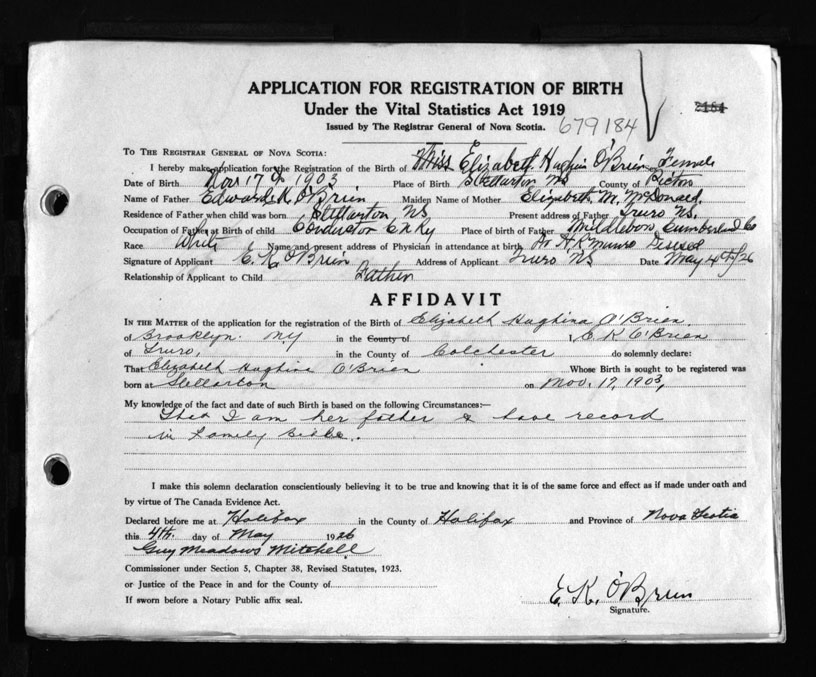 APPLICATION FOR REGISTRATION OF BIRTH
Under the Vital Statistics Act 1919
Issued by The Registrar General of Nova Scotia.
679184
To The Registrar General of Nova Scotia:
I hereby make application for the Registration of the Birth of Miss Elizabeth Hughina O'Brien Female
Date of Birth Nov 17th 1903 Place of Birth Stellarton NS County of Pictou
Name of Father Edward K. O'Brien Maiden Name of Mother Elizabeth M. McDonald
Residence of Father when child was born Stellarton NS Present address of Father Truro NS.
Occupation of Father at Birth of child Conductor C N Ry Place of birth of Father Middleboro Cumberland Co
Race White Name and present address of Physician in attendance at birth Dr H K Munro
Signature of Applicant E. K. O'Brien Address of Applicant Truro NS Date May 4th/26
Relationship of Applicant to Child Father
AFFIDAVIT
In the Matter of the application for the registration of the Birth of Elizabeth Hughina O'Brien
of Brooklyn. NY in the County of I, E K O'Brien
of Truro, in the County of Colchester do solemnly declare:
That Elizabeth Hughina O'Brien Whose Birth is sought to be registered was
born at Stellarton on Nov. 17, 1903,
My knowledge of the fact and date of such Birth is based on the following Circumstances:—
That I am her father & have record
in family bible.
I make this solemn declaration conscientiously believing it to be true and knowing that it is of the same force and effect as if made under oath and
by virtue of The Canada Evidence Act.
Declared before me at Halifax in the County of Halifax and Province of Nova Scotia
this 4th. day of May 1926
Guy Meadows Mitchell
Commissioner under Section 5, Chapter 38, Revised Statutes, 1923.
or Justice of the Peace in and for the County of
If sworn before a Notary Public affix seal.
E. K. O'Brien
Signature.